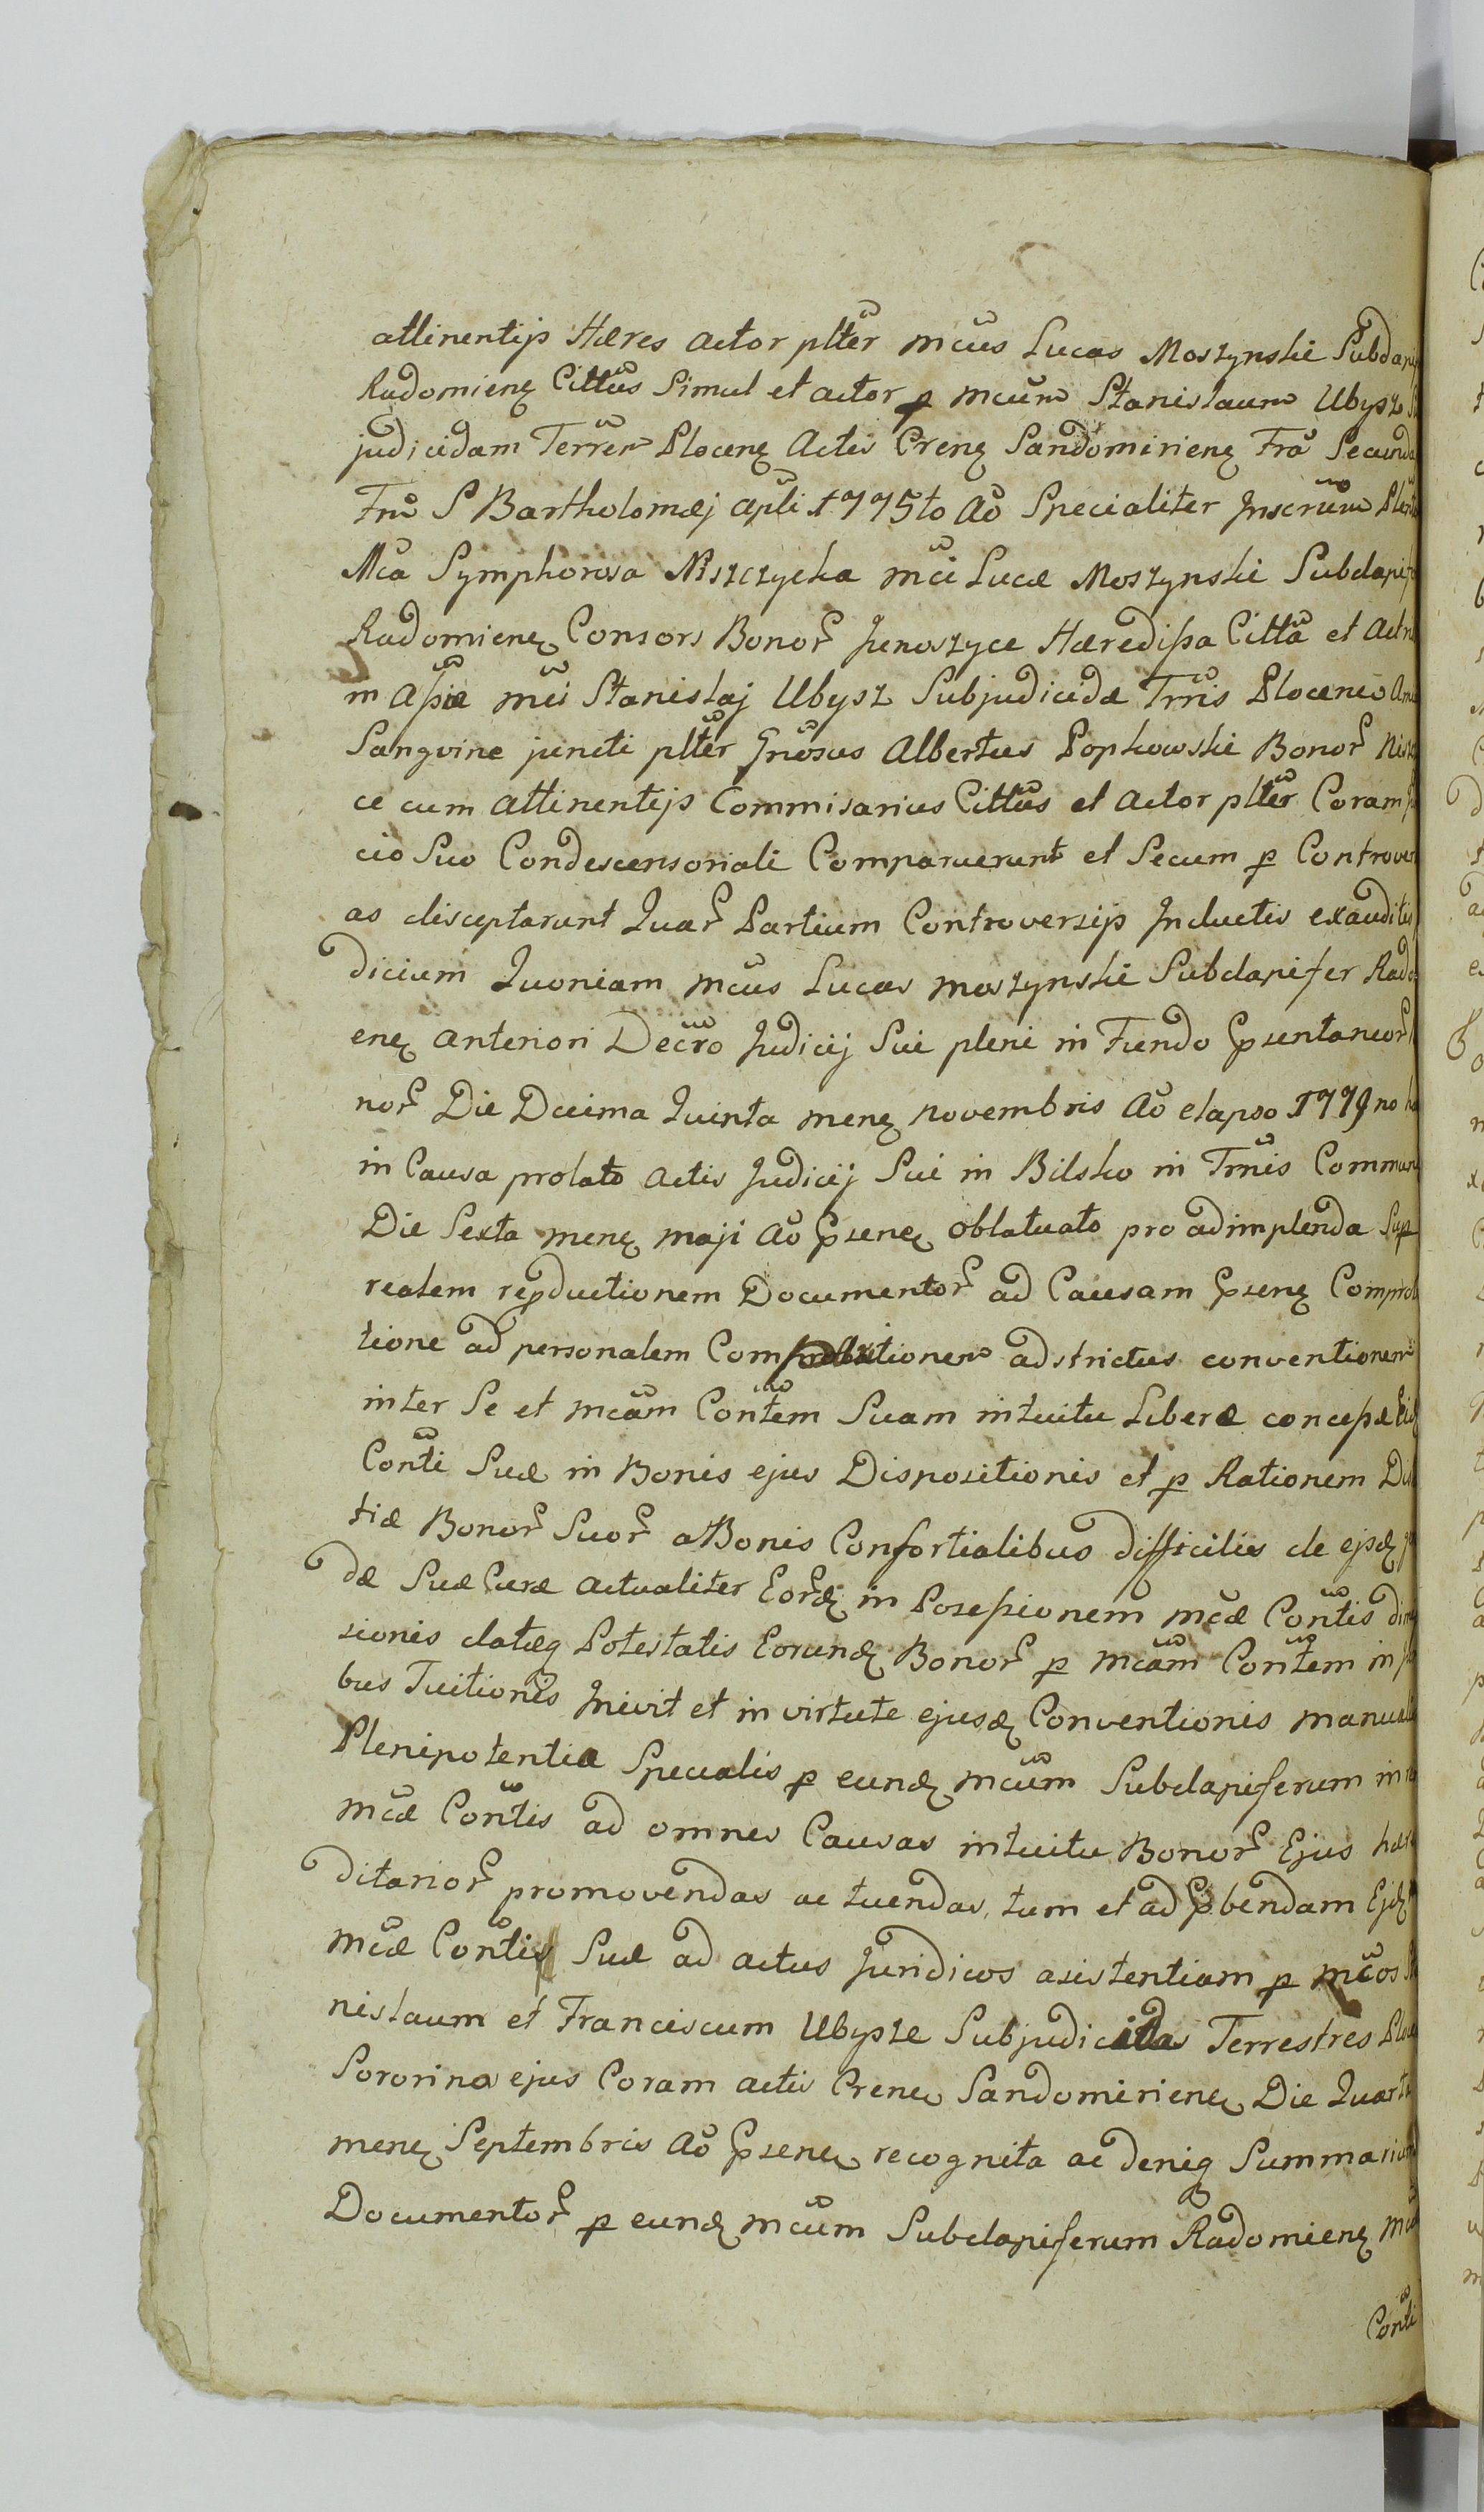 attinentijs Hæres actor plter mcus Lucas Moszynski Subdapif
Radomienę Cittus Simul et actor p mcum Stanislaum Ubysz
judicidam Terren Plocenę Actis Crenę Sandomirienę Fra Secunda
Fro S Bartholomæj apli 1775to Ao Specialiter Inscrum
Mca Symphorosa Niszczycka mci Lucæ Moszynski Subdapif
Radomienę Consors Bonor Jenoszyce Hæredißa Citta et Act
in aßia mci Stanislaj Ubysz Subjudicidæ Trris Plocenę
Sangvine juncti plter Gnosus Albertus Popkowski Bonor
ce cum attinentijs Commisarius Cittus et Actor plter Coram
cio Suo Condescensoriali Comparuerunt et Secum p Controver
as disceptarunt Quar Partium Controversijs Inductis exauditis
dicium Quoniam mcus Lucas moszynski Subdapifer Rado
enę anteriori Decro Judicij Sui pleni in Fundo Psentaneor
nor Die Decima Quinta menę novembris Ao elapso 1779no
in Causa prolato Actis Judicij Sui in Bilsko in Trris Commun
Die Sexta menę maji Ao Psenę oblatuato pro adimplenda Sup
realem repductionem Documentor ad Causam Psenę Comprob
tione ad personalem Comprobationem adstrictus conventionem
inter Se et mcam Contem Suam intuitu Liberæ conceßæ
Conti Suæ in Bonis ejus Dispositionis et p Rationem
tiæ Bonor Suor a Bonis Consortialibus difficilis de ejsdę
dæ Suæ Curæ actualiter Eordę in Poseßionem mcæ Contis
sionis datæq Potestatis Eorundę Bonor p mcam Contem in
bus Tuitionis Inivit et in virtute ejusdę Conventionis manual
Plenipotentia Specialis p eundę mcum Subdapiferum in
mcæ Contis ad omnes Causas intuitu Bonor Ejus hær
ditarior promovendas ac tuendas, tum et ad Pbendam Ejdę
mcæ Contis Suæ ad actus Juridicos asistentiam p mcos
nislaum et Franciscum Ubysze Subjudicidas Terrestres
Sororinos ejus Coram actis Crenę Sandomirienę Die Quarta
menę Septembris Ao Psenę recognita ac deniq Summarium
Documentor p eundę mcum Subdapiferum Radomienę
Conti